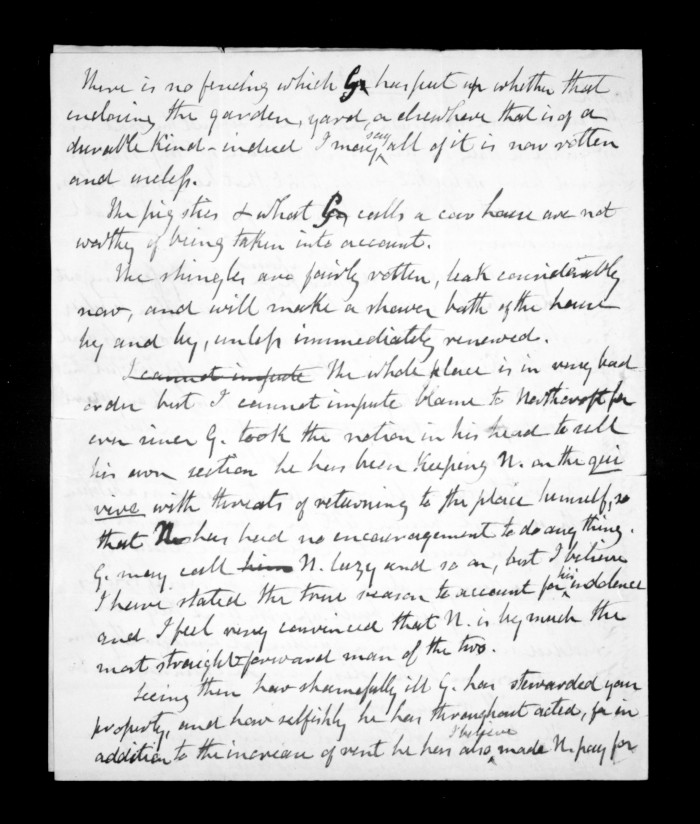 There is no fencing which G. has put up whether that
inclosing the garden, yard, or elsewhere that is of a
durable kind - indeed I may say all of it is now rotten
and useless.
The pig sties & what G. calls a cow house are not
worthy of being taken into account.
The shingles are fairly rotten, leak considerably
now, and will make a shower bath of the house
by and by, unless immediately renewed.
I cannot impute The whole place is in very bad
order but I cannot impute blame to Northcroft for
ever since G. took the notion in his head to sell
his own section he has been keeping N. on the qui
vive with threats of returning to the place himself, so
that N. has had no encouragement to do any thing.
G. may call him N. lazy and so on, but I believe
I have stated the true reason to account for his indolence
and I feel very convinced that N. is by much the
most straightforward man of the two.
Seeing then how shamefully ill G. has stewarded your
property, and how selfishly he has throughout acted, for in
addition to the increase of rent he has also, I believe made N. pay for